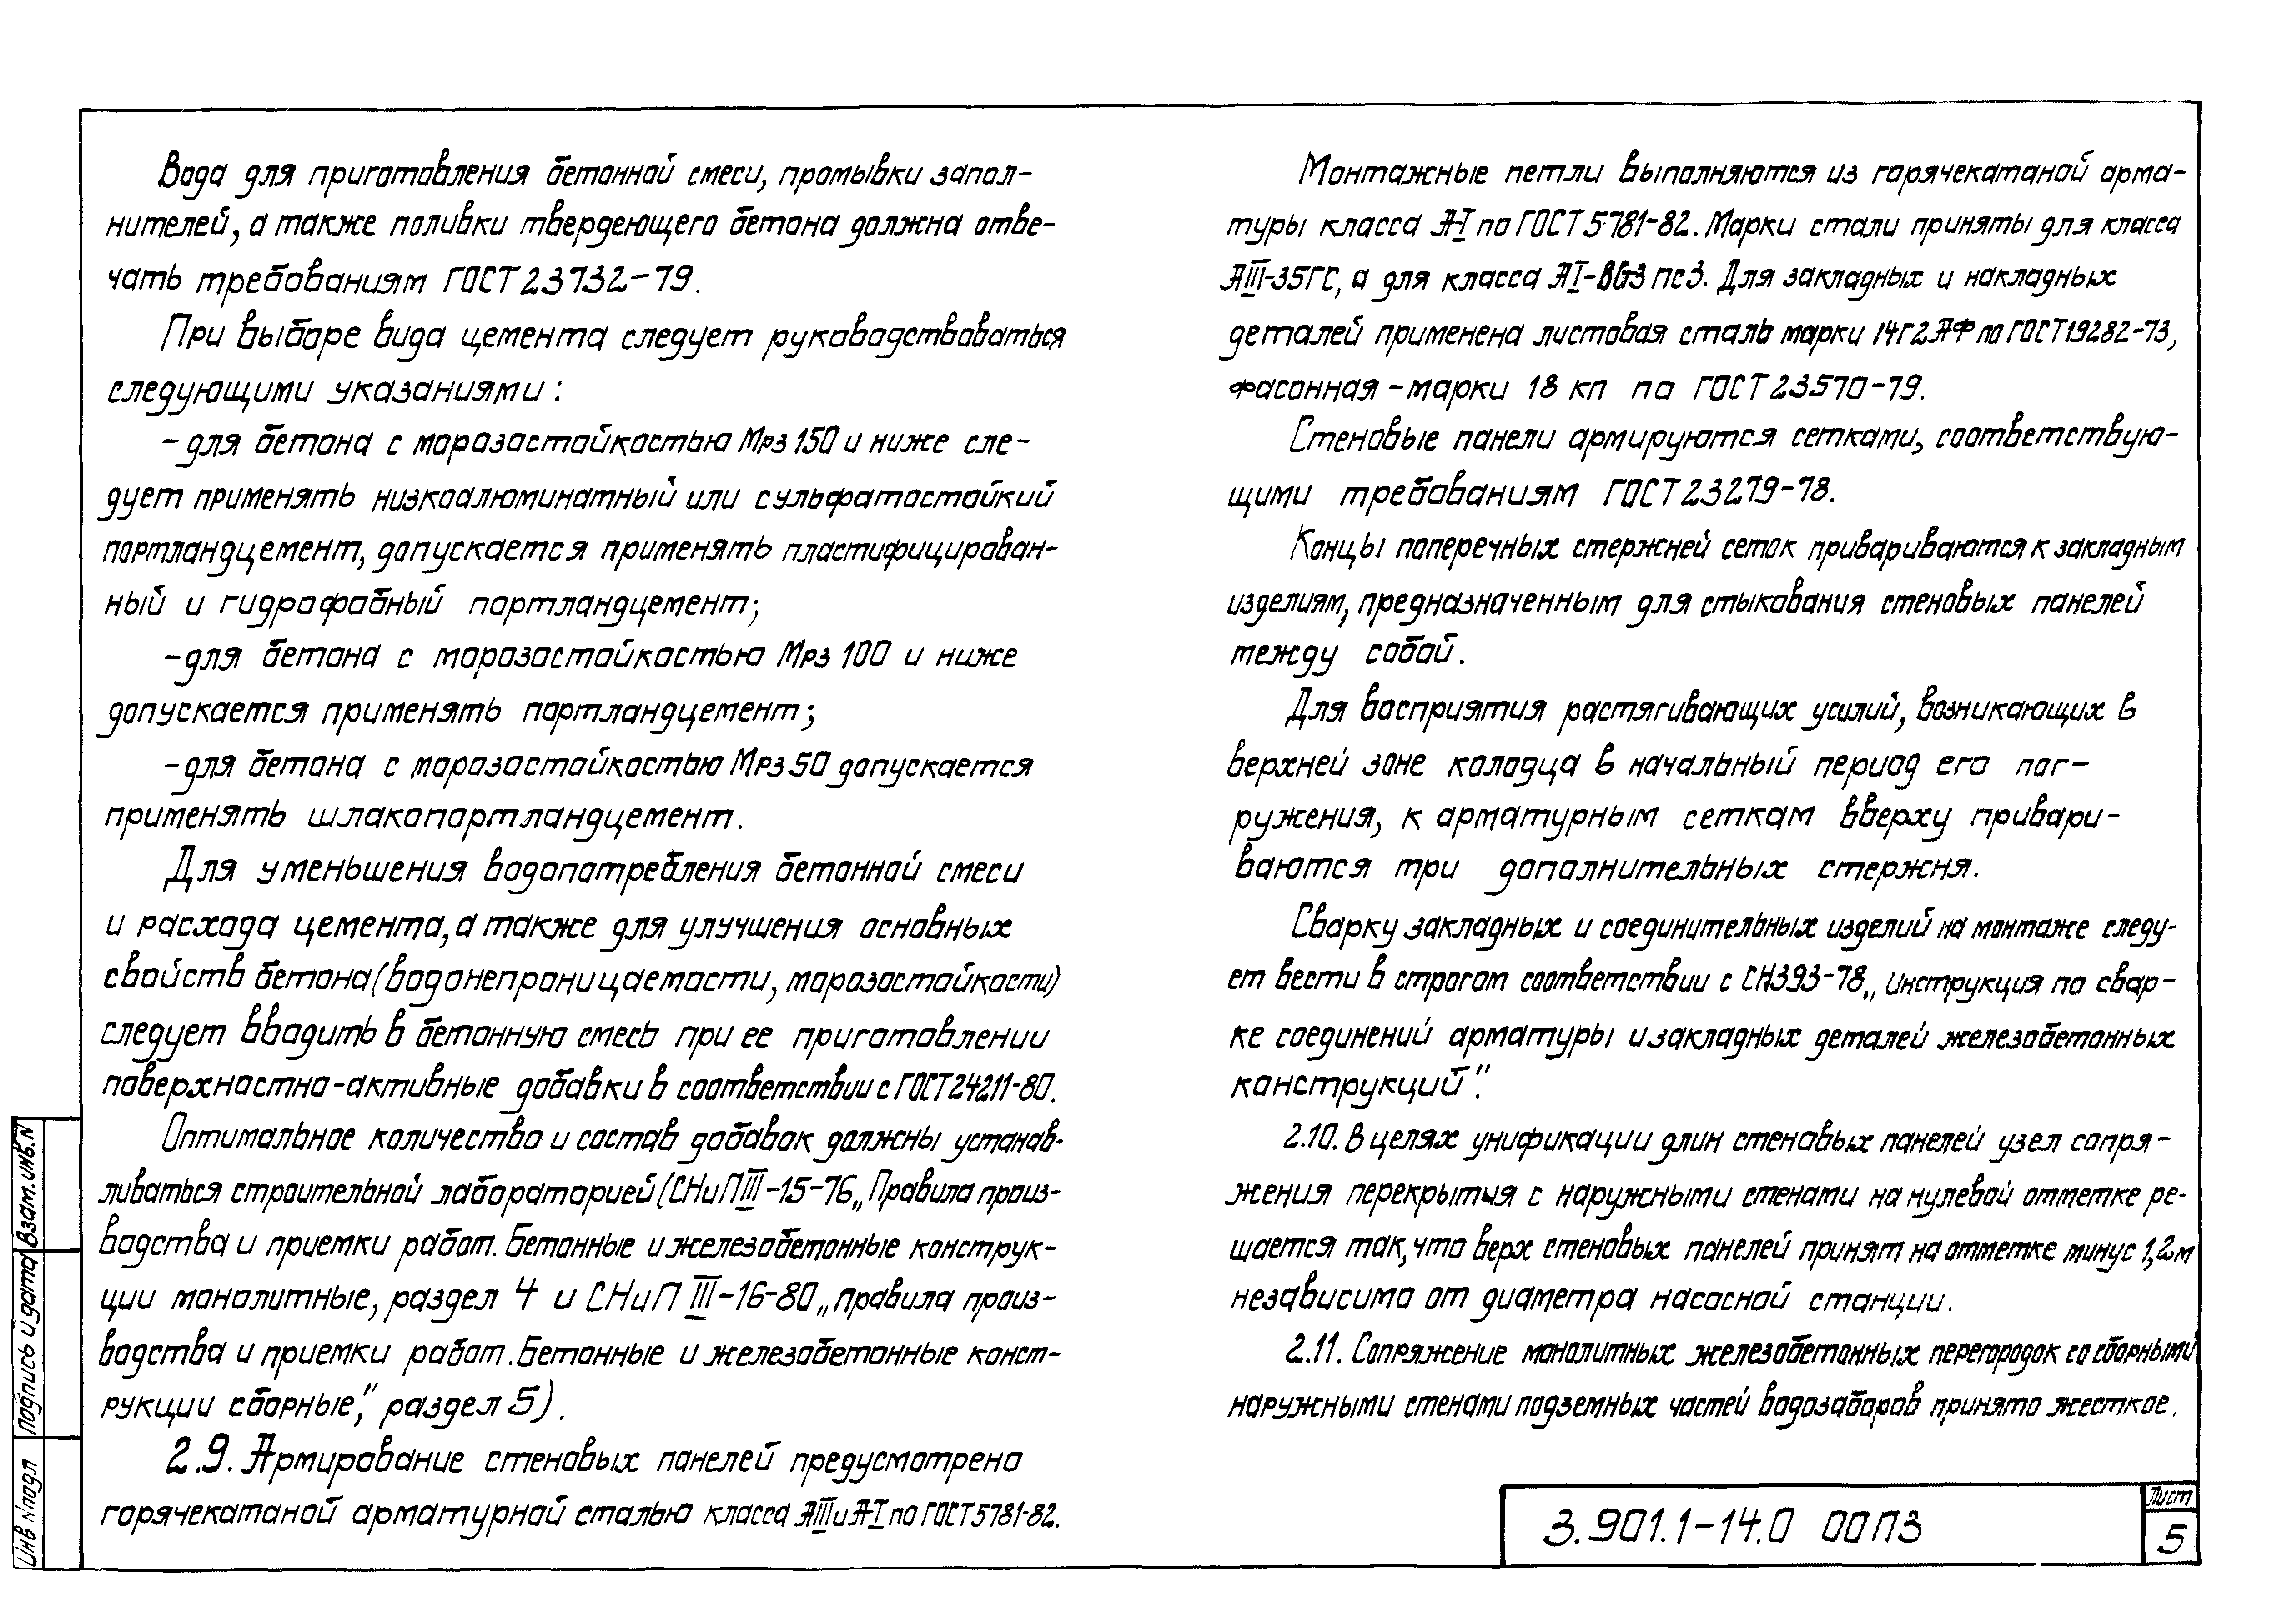 Вода для приготовления бетонной смеси, промывки запол-
нителей, а также поливки твердеющего бетона должна отве-
чать требованиям ГОСТ 23732-79.
При выборе вида цемента следует руководствоваться
следующими указаниями:
-для бетона с морозостойкостью Мрз 150 и ниже сле-
дует применять низкоалюминатный или сульфатостойкий
портландцемент, допускается применять пластифицирован-
ный и гидрофобный портландцемент;
-для бетона с морозостойкостью Мрз 100 и ниже
допускается применять портландцемент;
-для бетона с морозостойкостью Мрз 50 допускается
применять шлакопортландцемент.
Для уменьшения водопотребления бетонной смеси
и расхода цемента, а также для улучшения основных
свойств бетона (водонепроницаемости, морозостойкости)
следует вводить в бетонную смесь при ее приготовлении
поверхностно-активные добавки в соответствии с ГОСТ 24211-80.
Оптимальное количество и состав добавок должны устанав-
ливаться строительной лабораторией (СНиП III-15-76 „Правила произ-
водства и приемки работ. Бетонные и железобетонные конструк-
ции монолитные, раздел 4 и СНиП III-16-80 „Правила произ-
водства и приемки работ. Бетонные и железобетонные конст-
рукции сборные,” раздел 5).
2.9. Армирование стеновых панелей предусмотрено
горячекатаной арматурной сталью класса АIII и А-I по ГОСТ 5781-82.
Монтажные петли выполняются из горячекатаной арма-
туры класса А-I по ГОСТ 5781-82. Марки стали приняты для класса
АIII-35ГС, а для класса АI-ВСт3 пс3. Для закладных и накладных
деталей применена листовая сталь марки 14Г2АФ по ГОСТ 19282-73,
фасонная - марки 18 кп по ГОСТ 23570-79.
Стеновые панели армируются сетками, соответствую-
щими требованиям ГОСТ 23279-78.
Концы поперечных стержней сеток привариваются к закладным
изделиям, предназначенным для стыкования стеновых панелей
между собой.
Для восприятия растягивающих усилий, возникающих в
верхней зоне колодца в начальный период его пог-
ружения, к арматурным сеткам вверху привари-
ваются три дополнительных стержня.
Сварку закладных и соединительных изделий на монтаже следу-
ет вести в строгом соответствии с СН393-78 „Инструкция по свар-
ке соединений арматуры и закладных деталей железобетонных
конструкций”.
2.10. В целях унификации длин стеновых панелей узел сопря-
жения перекрытия с наружными стенами на нулевой отметке ре-
шается так, что верх стеновых панелей принят на отметке минус 1,2м
независимо от диаметра насосной станции.
2.11. Сопряжение монолитных железобетонных перегородок со сборными
наружными стенами подземных частей водозаборов принято жесткое.
Взам. инв. N
Подпись и дата
Инв N подл
3.901.1-14.0 00ПЗ
Лист
5